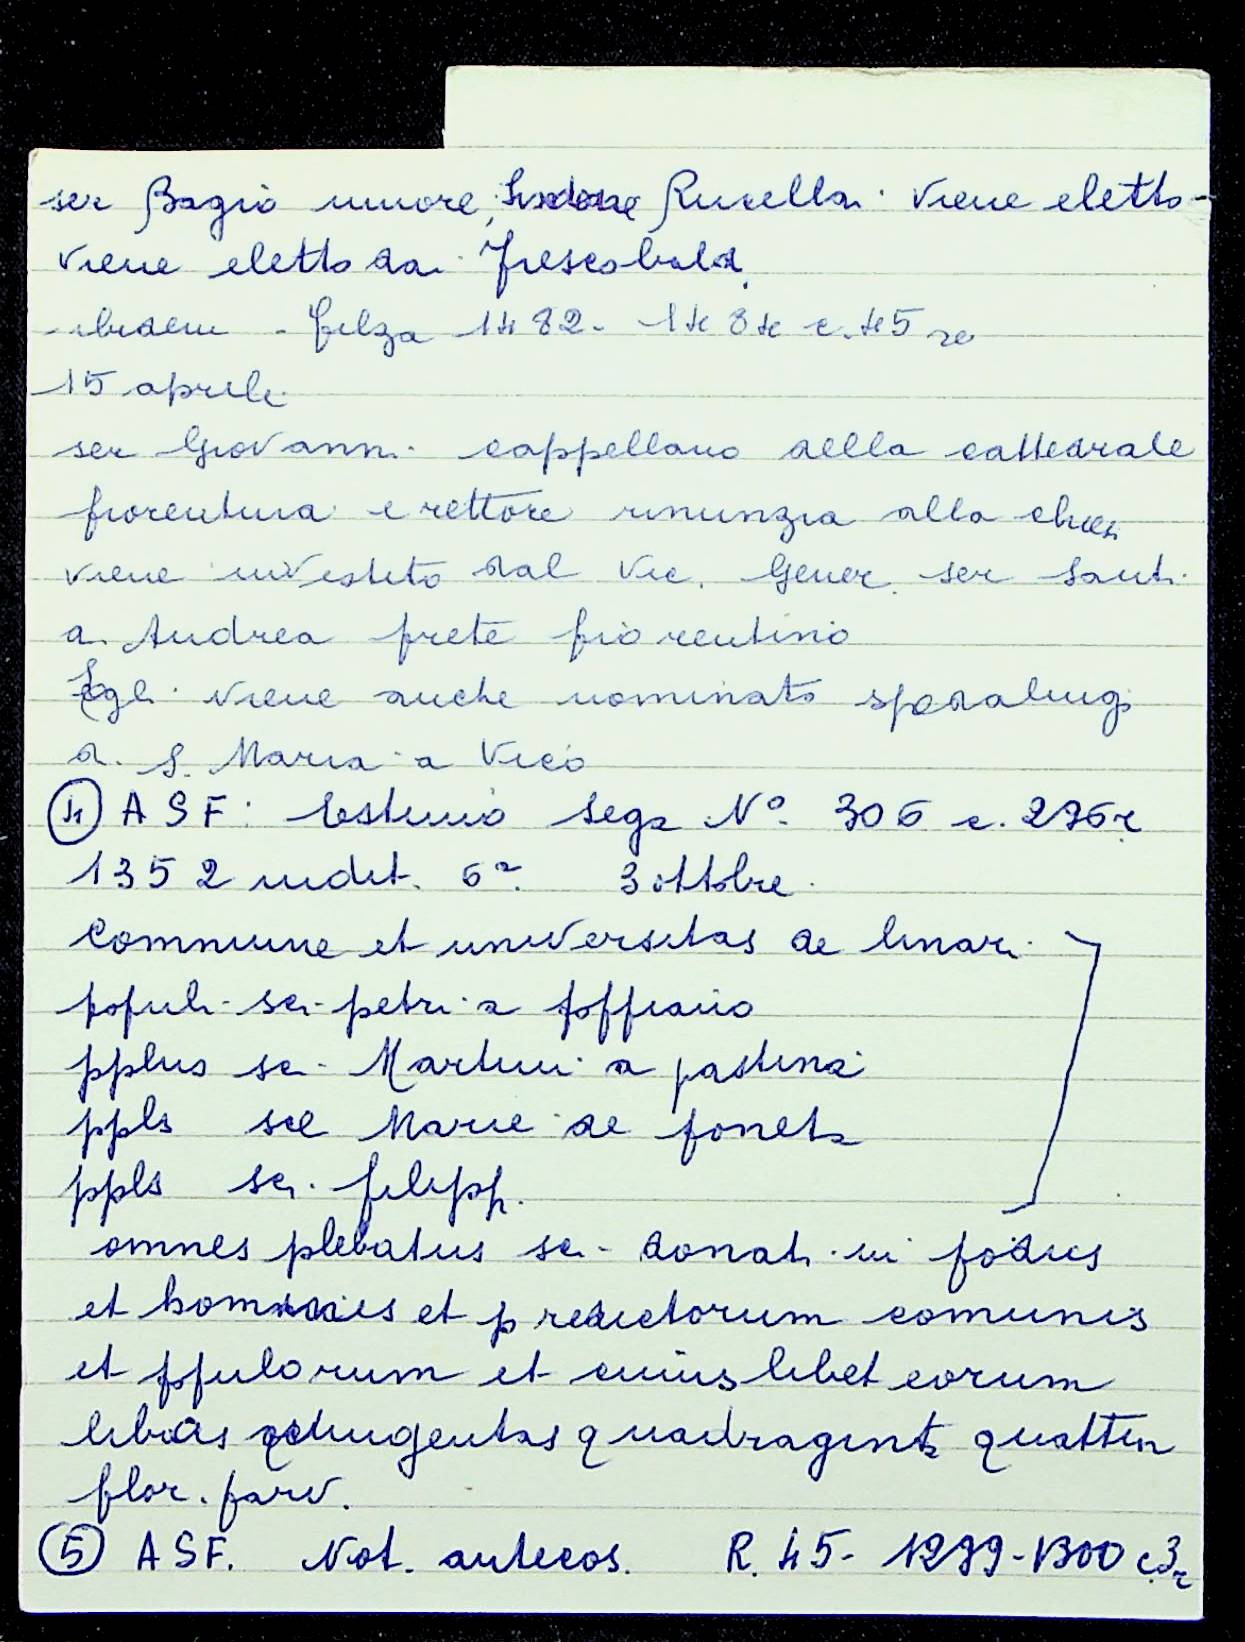 ser Bagio muore, Rucellai viene eletto
viene eletto dai Frescobaldi
ibidem - filza 1482 - 1484 c. 45 r
15 aprile
ser Giovanni cappellano della cattedrale
fiorentina e rettore rinunzia alla chiesa
viene investito dal Vic. Gener. ser Santi
di Andrea prete fiorentino
Egli viene anche nominato spedalingo
di S. Maria a Vico
④ ASF: Estimo Sega N°. 306 c. 276 r
1352 indit. 6a. 3 ottobre.
Commune et universitas de linari
populi sci petri a poppiano
pplus sci Martini a pastina
ppls sce Marie de foneta
ppls sci filippi
omnes plebatus sci donati in pocius
et homines et predictorum comunis
et ppulorum et cuius libet eorum
libras quadraginta quattuor
flor. parv.
⑤ ASF. Not. antecos. R. 45 - 1299-1300 c. 3r